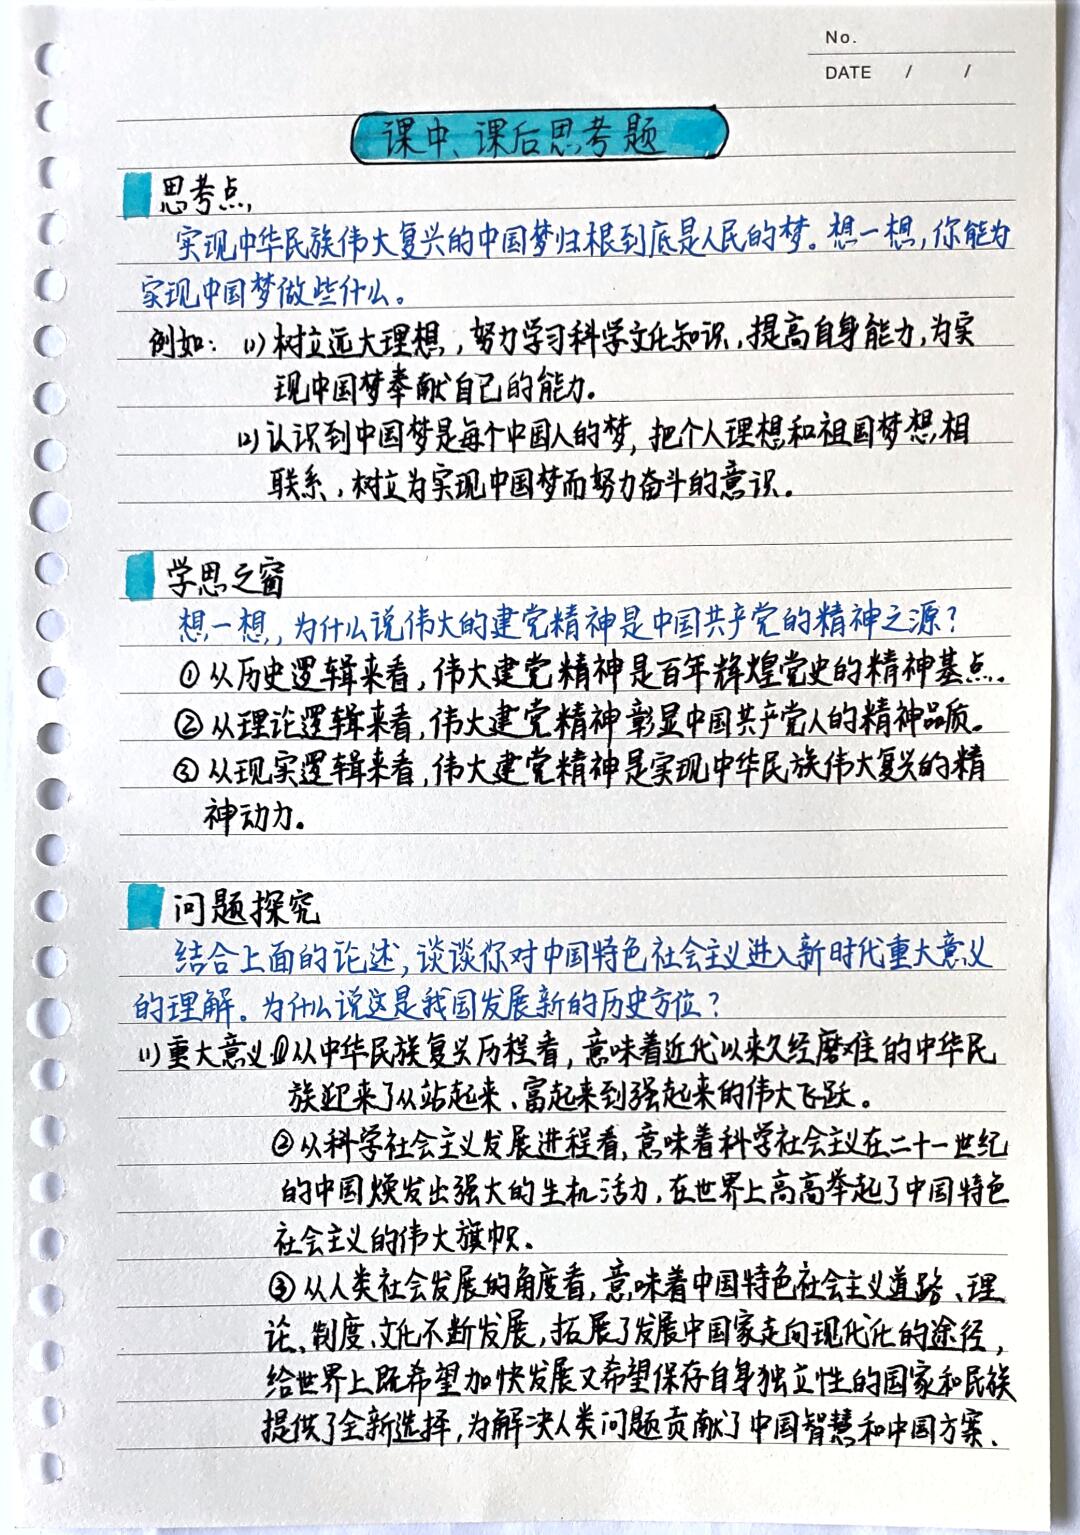 No.
DATE / /
课中、课后思考题
思考点
实现中华民族伟大复兴的中国梦归根到底是人民的梦。想一想,你能为
实现中国梦做些什么。
例如: (1)树立远大理想,努力学习科学文化知识,提高自身能力,为实
现中国梦奉献自己的能力。
(2)认识到中国梦是每个中国人的梦,把个人理想和祖国梦想相
联系,树立为实现中国梦而努力奋斗的意识。
学思之窗
想一想,为什么说伟大的建党精神是中国共产党的精神之源?
①从历史逻辑来看,伟大建党精神是百年辉煌党史的精神基点。
②从理论逻辑来看,伟大建党精神彰显中国共产党人的精神品质。
③从现实逻辑来看,伟大建党精神是实现中华民族伟大复兴的精
神动力。
问题探究
结合上面的论述,谈谈你对中国特色社会主义进入新时代重大意义
的理解。为什么说这是我国发展新的历史方位?
(1)重大意义①从中华民族复兴历程看,意味着近代以来久经磨难的中华民
族迎来了从站起来、富起来到强起来的伟大飞跃。
②从科学社会主义发展进程看,意味着科学社会主义在二十一世纪
的中国焕发出强大的生机活力,在世界上高高举起了中国特色
社会主义的伟大旗帜、
③从人类社会发展的角度看,意味着中国特色社会主义道路、理
论、制度、文化不断发展,拓展了发展中国家走向现代化的途径,
给世界上既希望加快发展又希望保存自身独立性的国家和民族
提供了全新选择,为解决人类问题贡献了中国智慧和中国方案、